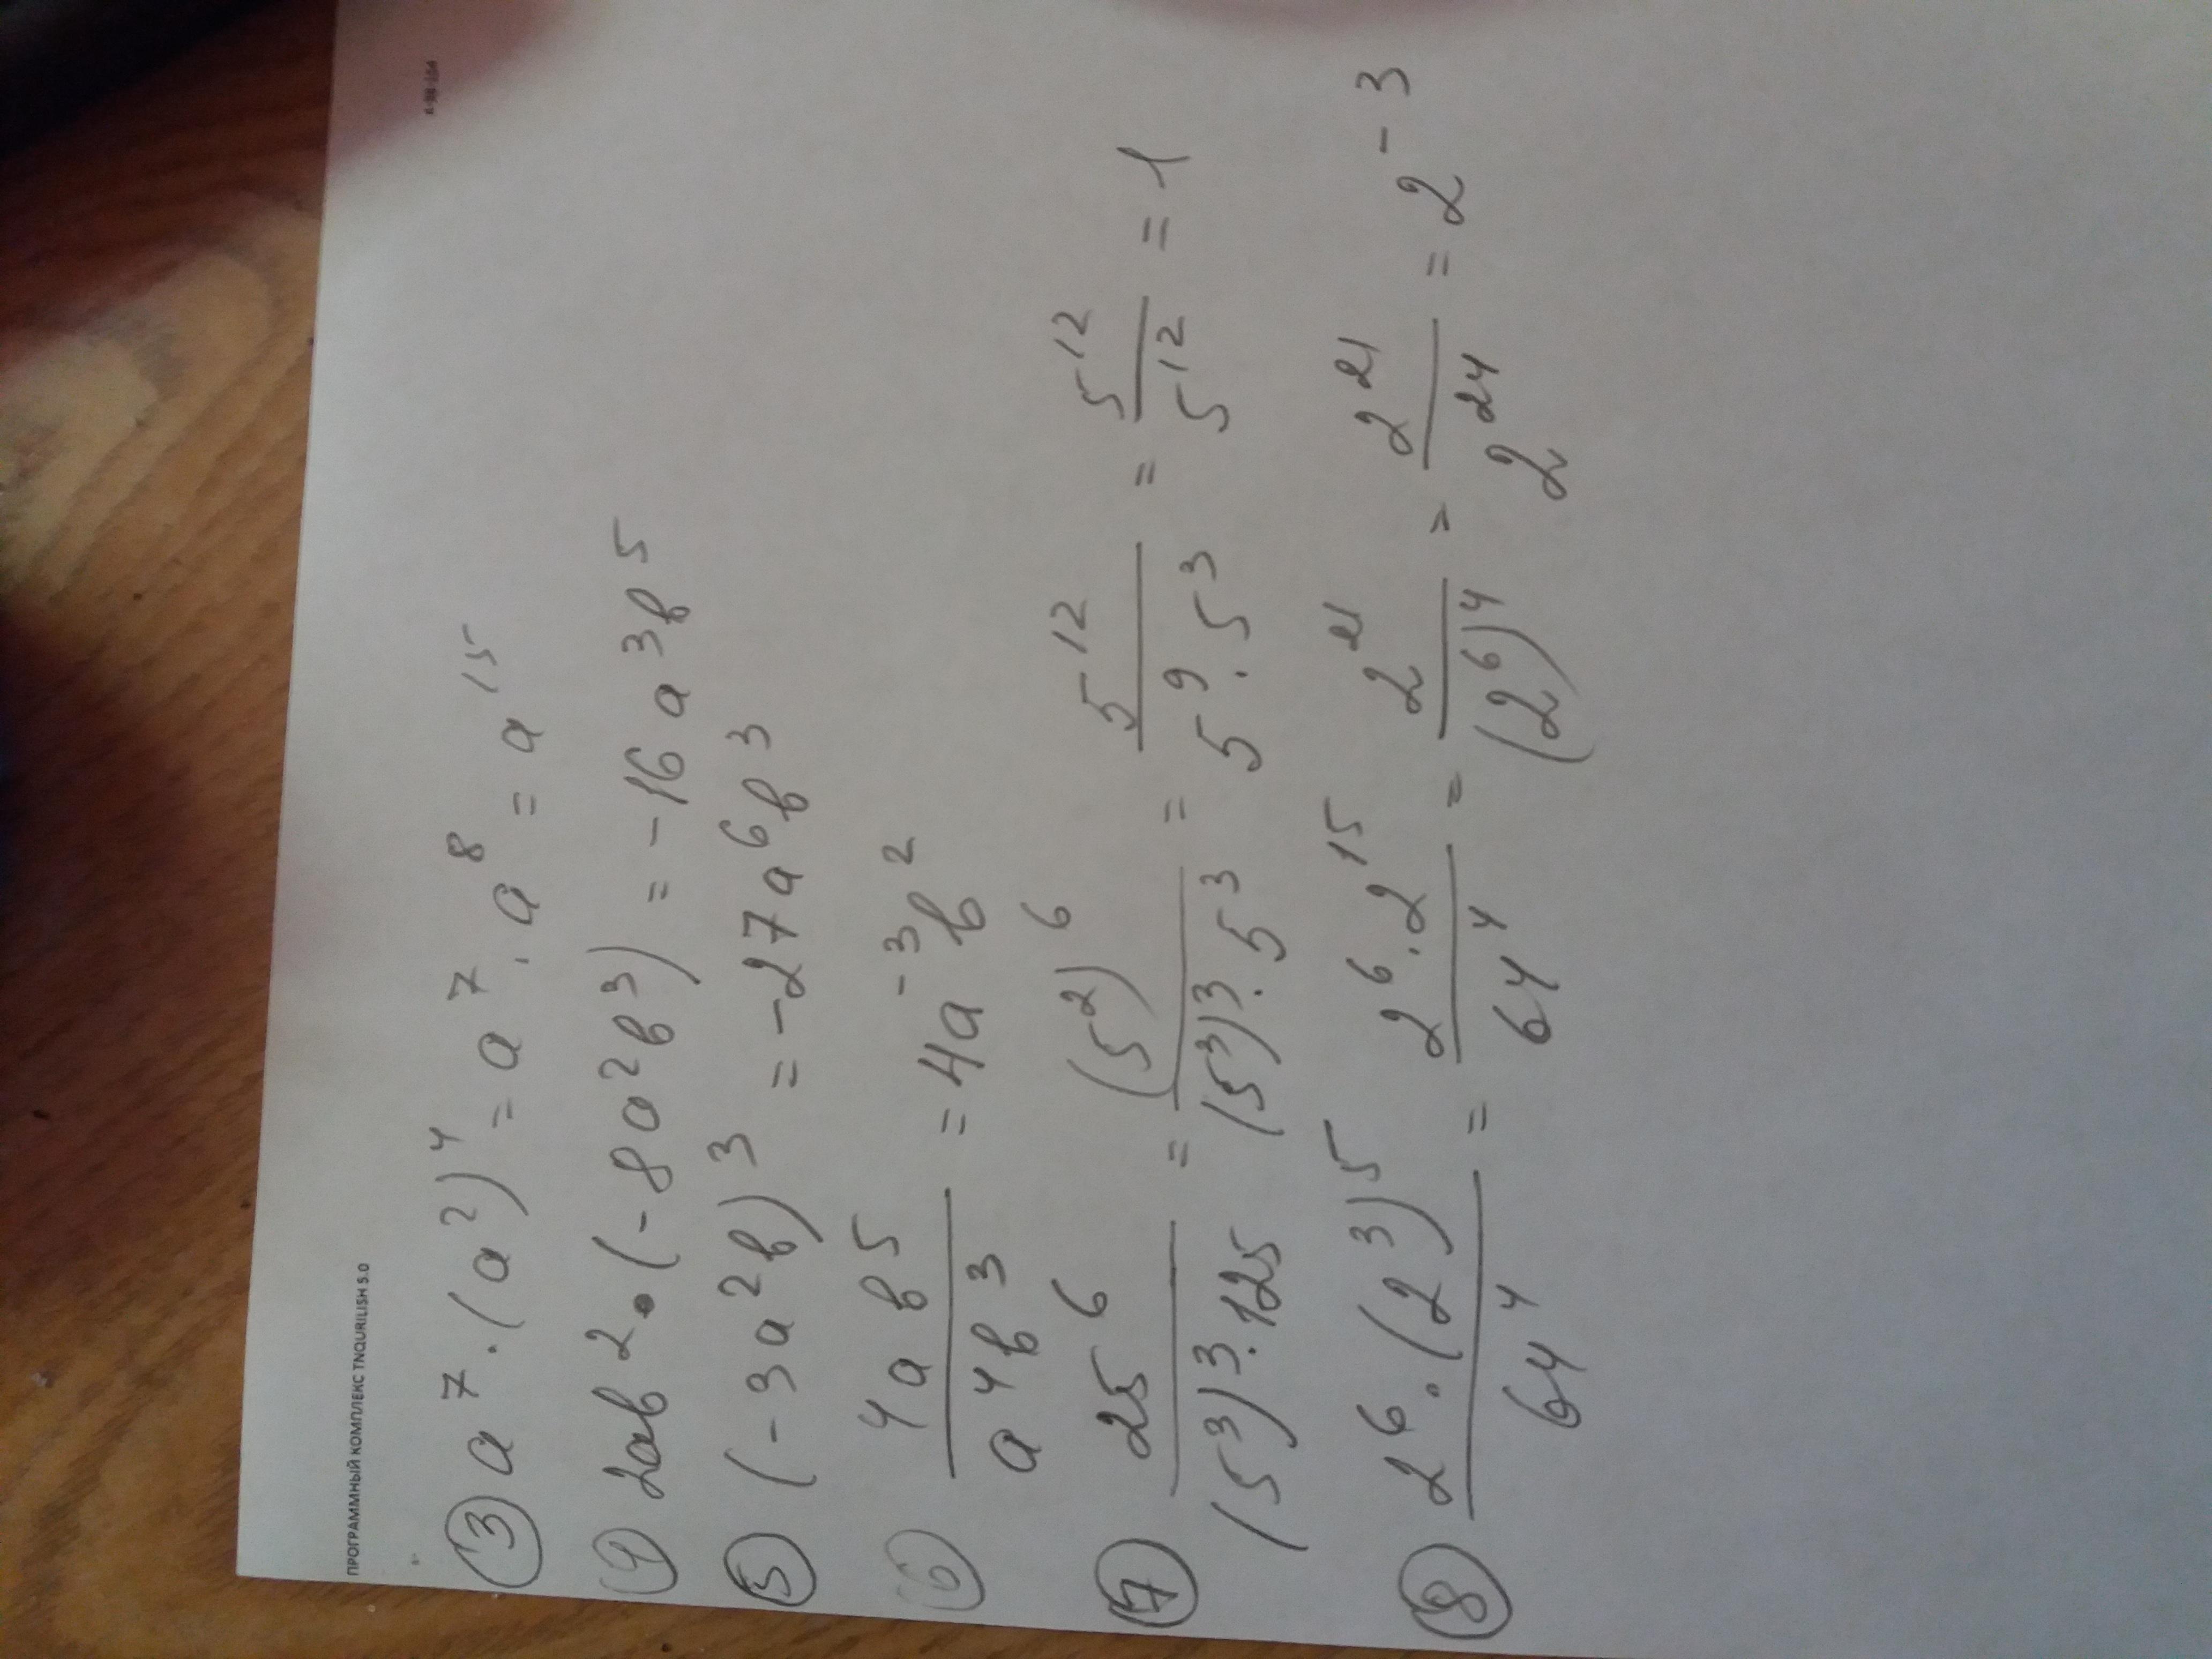 ПРОГРАММНЫЙ КОМПЛЕКС TNQURILISH 5.0
③ a⁷·(a²)⁴ = a⁷·a⁸ = a¹⁵
④ 2ab²·(-8a²b³) = -16a³b⁵
⑤ (-3a²b)³ = -27a⁶b³
⑥ 4ab⁵/a⁴b³ = 4a⁻³b²
⑦ 25⁶/(5³)³·125 = (5²)⁶/(5³)³·5³ = 5¹²/5⁹·5³ = 5¹²/5¹² = 1
⑧ 2⁶·(2³)⁵/64⁴ = 2⁶·2¹⁵/64⁴ = 2²¹/(2⁶)⁴ = 2²¹/2²⁴ = 2⁻³